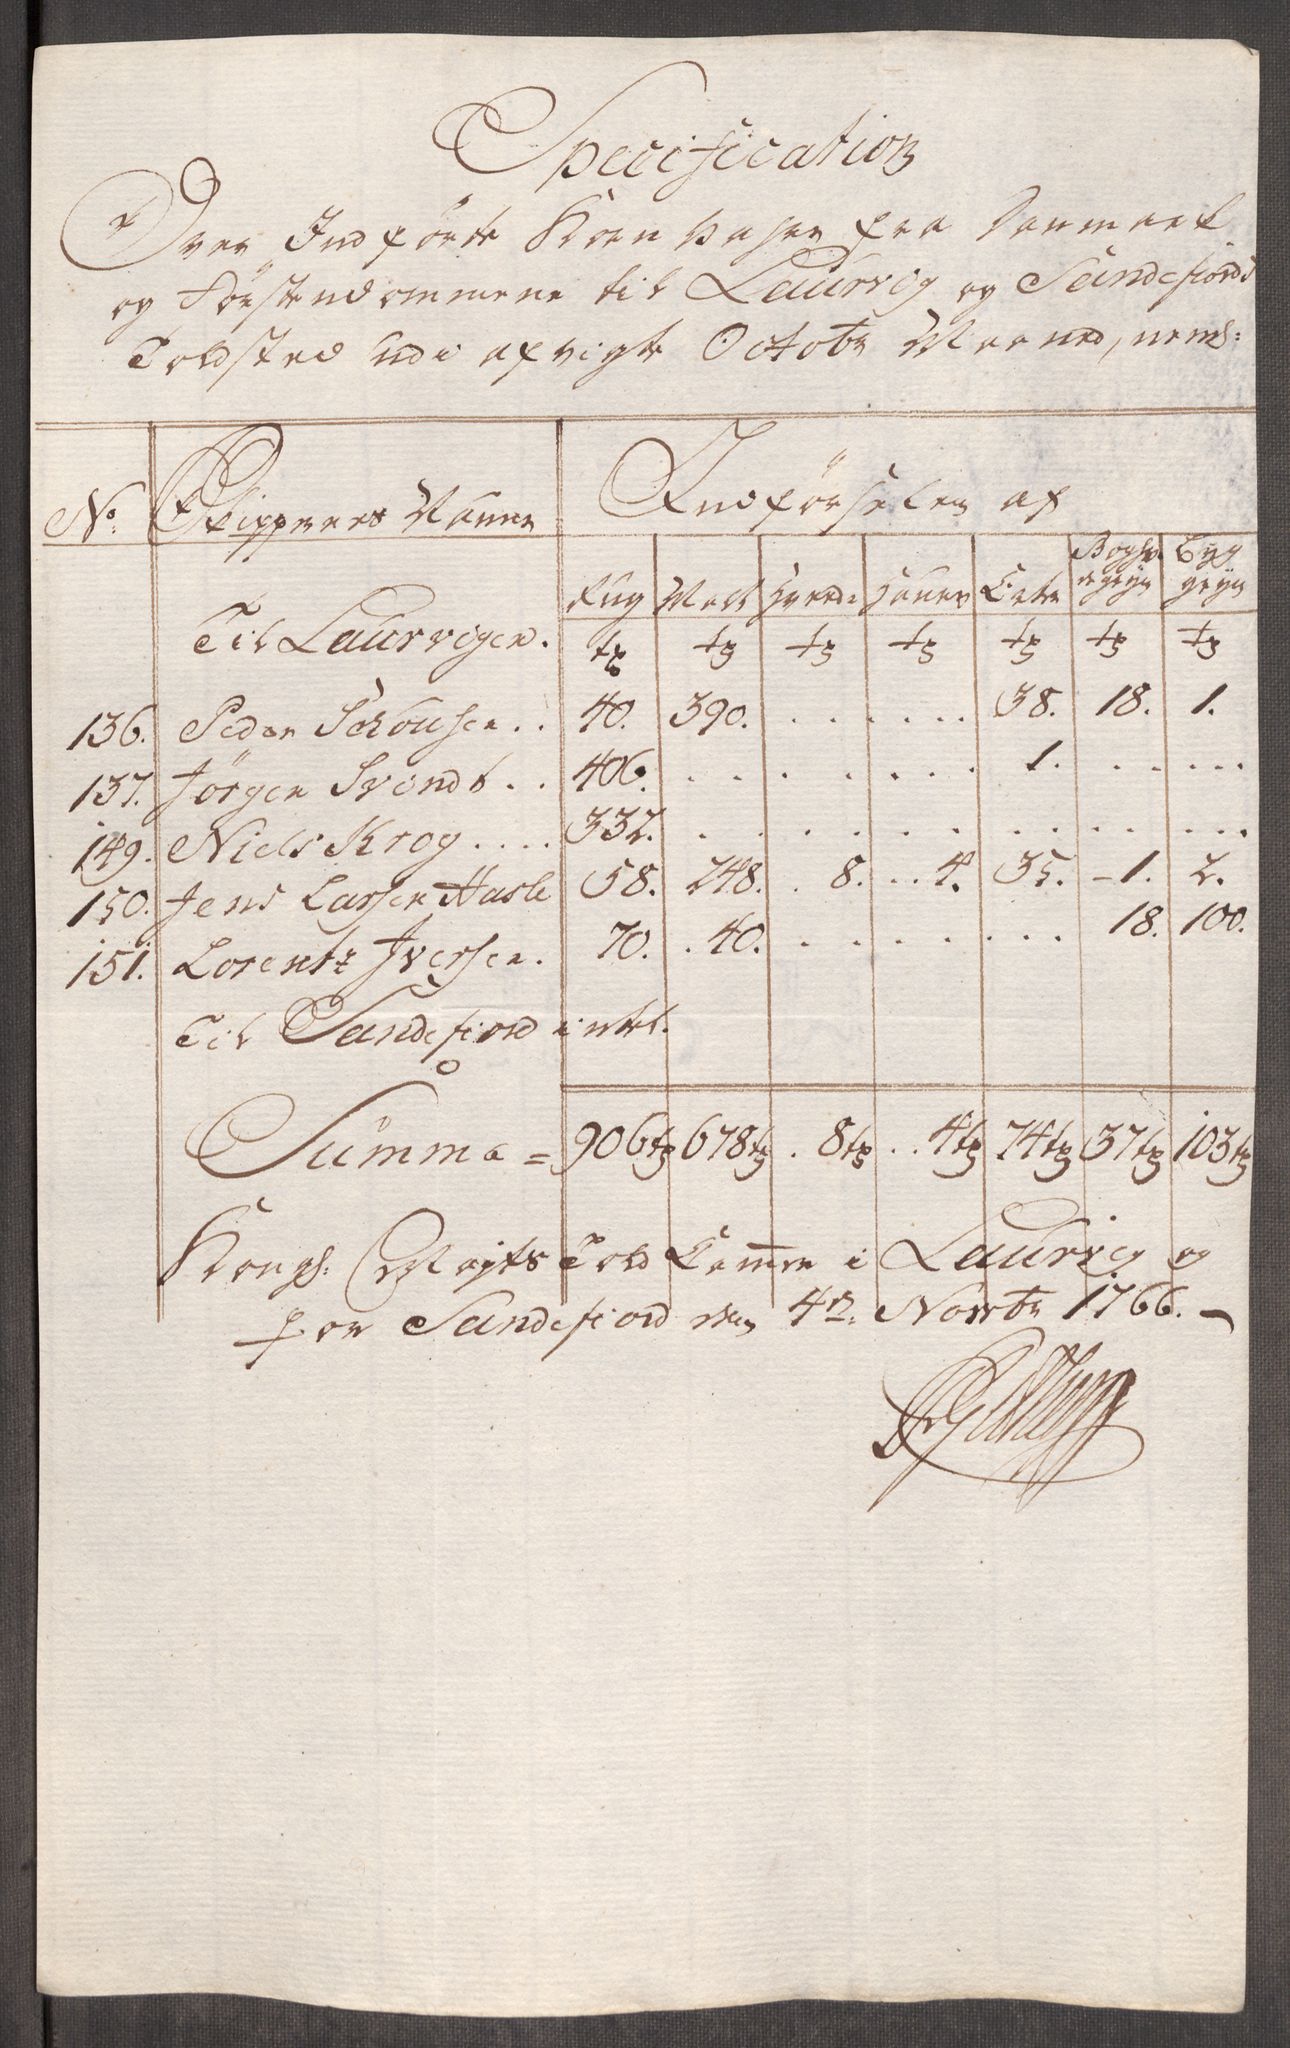 Specification
Over Indförte Korn Vahrer fra Danmark
og Förstendommene til Laurvig og Sandefiords
Toldsted udi afvigte Octobr Maaned, neml:
No: Skippernes Naune Indförselen af
Rug Malt Hvede Haure Erter Boghvedegryn Byggryn
Til Laurvigen. tr tr tr tr tr tr tr
136. Peder Schousen .. 40. 390. . . . . . . 38. 18. 1.
137. Jörgen Svendt .. 406. . . . . . . . . 1. . . . . . .
149. Niels Krog .... 332. . . . . . . . . . . . . . .
150. Jens Larsen Hasle 58. 248. . 8. .. 4. 35. - 1. 2.
151. Lorentz Iversen. 70. . 40. . . . . . . . . 18. 100.
Til Sandefiord intet.
Summa = 906 tr 678 tr . 8 tr .. 4 tr 74 tr 37 tr 103 tr
Kongl: Mayts Told Cammer i Laurvig og
for Sandefiord den 4de: Novbr 1766. -